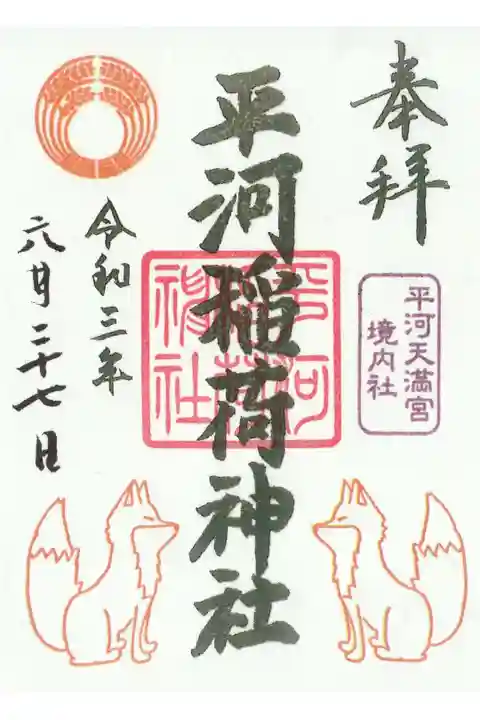 奉拝
平河天満宮
境内社
平河稲荷神社
平河
稲荷
神社
令和三年
六月二十七日